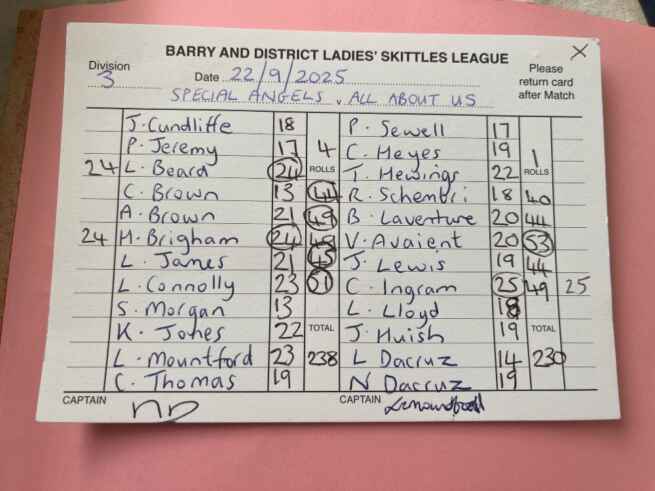 BARRY AND DISTRICT LADIES' SKITTLES LEAGUE X
Division 3 Date 22/9/2025 Please return card after Match
SPECIAL ANGELS v ALL ABOUT US
J. Cundliffe 18 P. Sewell 17
P. Jeremy 17 4 C. Heyes 19 1
24 L. Beard 24 ROLLS T. Hewings 22 ROLLS
C. Brown 13 44 R. Schembri 18 40
A. Brown 21 49 B. Laventure 20 44
24 H. Brigham 24 49 V. Avaient 20 53
L. James 21 45 J. Lewis 19 44
L. Connolly 23 51 C. Ingram 25 49 25
S. Morgan 13 L. Lloyd 18
K. Jones 22 TOTAL J. Huish 19 TOTAL
L. Mountford 23 238 L Dacruz 14 230
C. Thomas 19 N Dacruz 19
CAPTAIN CAPTAIN